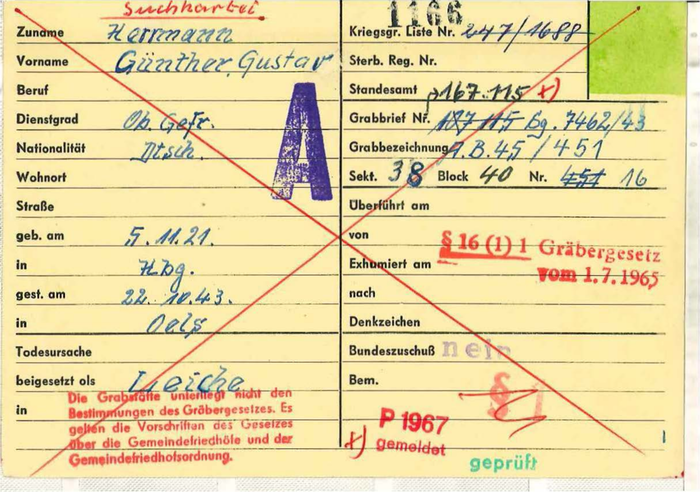 Suchkartei
Zuname Herrmann
Vorname Günther, Gustav
Beruf
Dienstgrad Ob. Gefr.
Nationalität Dtsch.
Wohnort
Straße
geb. am 5.11.21.
in Hbg.
gest. am 22.10.43.
in Oels
Todesursache
beigesetzt als Leiche
in
Die Grabstätte unterliegt nicht den
Bestimmungen des Gräbergesetzes. Es
gelten die Vorschriften des Gesetzes
über die Gemeindefriedhöfe und der
Gemeindefriedhofsordnung.
A
1166
Kriegsgr. Liste Nr. 247/1688
Sterb. Reg. Nr.
Standesamt p167.115 x)
Grabbrief Nr. 117 115 Bg. 7462/43
Grabbezeichnung A.B.45/451
Sekt. 38 Block 40 Nr. 451 16
Überführt am
von
§ 16 (1) 1 Gräbergesetz
vom 1.7.1965
Exhumiert am
nach
Denkzeichen
Bundeszuschuß nein
Bem.
§ 1
x) P 1967
gemeldet
geprüft